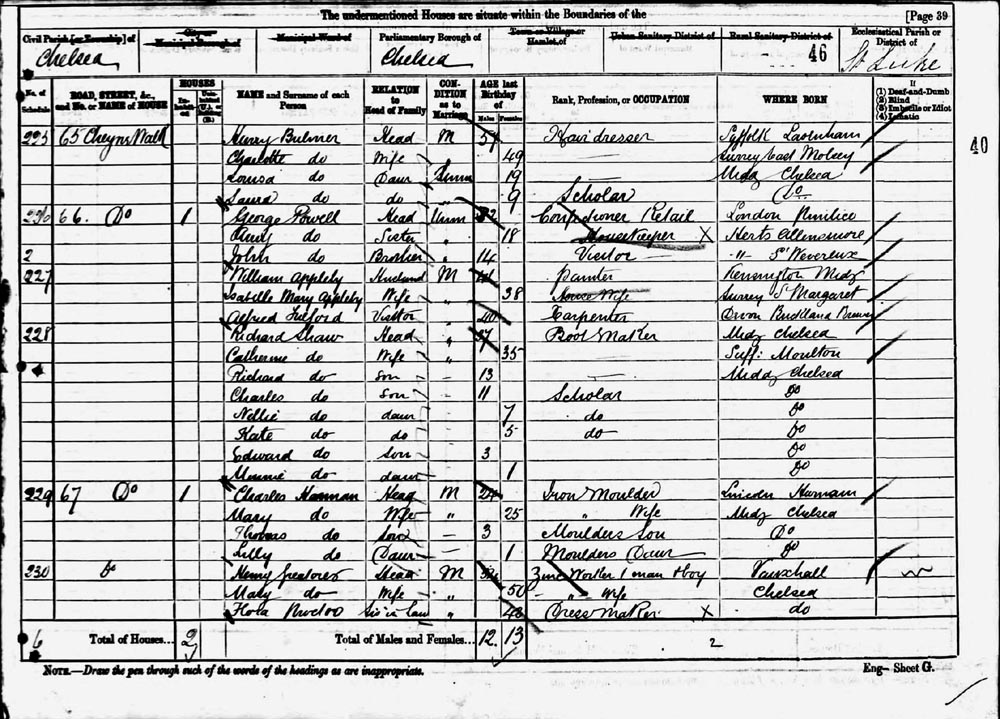 The undermentioned Houses are situate within the Boundaries of the [Page 39
Civil Parish [or Township] of City or Municipal Borough of Municipal Ward of Parliamentary Borough of Town or Village or Hamlet of Urban Sanitary District of Rural Sanitary District of Ecclesiastical Parish or District of
Chelsea Chelsea 46 St Luke
No. of Schedule ROAD, STREET, &c., and No. or NAME of HOUSE HOUSES Inhabited Uninhabited (U.), or Building (B.) NAME and Surname of each Person RELATION to Head of Family CONDITION as to Marriage AGE last Birthday of Males Females Rank, Profession, or OCCUPATION WHERE BORN If (1) Deaf-and-Dumb (2) Blind (3) Imbecile or Idiot (4) Lunatic
40
225 65 Cheyne Walk Henry Bulmer Head M 51 Hairdresser Suffolk Lavenham
Charlotte do Wife " 49 — Surrey East Molsey
Louisa do Daur Unm 19 — Midx Chelsea
Laura do do " 9 Scholar Do
226 66. Do 1 George Powell Head Unm Confectioner Retail London Pimlico
do Sister " 18 Housekeeper X Herts Allensmore
2 John do Brother " 14 Visitor " St Wevereux
227 William Appleby Husband M Painter Kensington Midx
Isabille Mary Appleby Wife " 38 House Wife Surrey St Margaret
Alfred Visitor " 20 Carpenter Devon Buckland
228 Richard Shaw Head " 37 Boot Maker Midx Chelsea
Catherine do Wife " 35 Suff: Moulton
Richard do Son – 13 — Midx Chelsea
Charles do Son – 11 Scholar Do
Nellie do daur – 7 do Do
Kate do do – 5 do Do
Edward do Son – 3 Do
Minnie do daur – 1 Do
229 67 Do 1 Charles Harman Head M 24 Iron Moulder Lincoln
Mary do Wife " 25 " Wife Midx Chelsea
Thomas do Son – 3 Moulders Son Do
Lilly do Daur – 1 Moulders Daur Do
230 Do Henry Greatorex Head M Zinc Worker 1 man & boy Vauxhall
Mary do Wife " 50 " Wife Chelsea
Sis in Law " 48 Dress Maker X do
6 Total of Houses... 2 Total of Males and Females... 12. 13 2
NOTE.—Draw the pen through such of the words of the headings as are inappropriate. Eng– Sheet G.